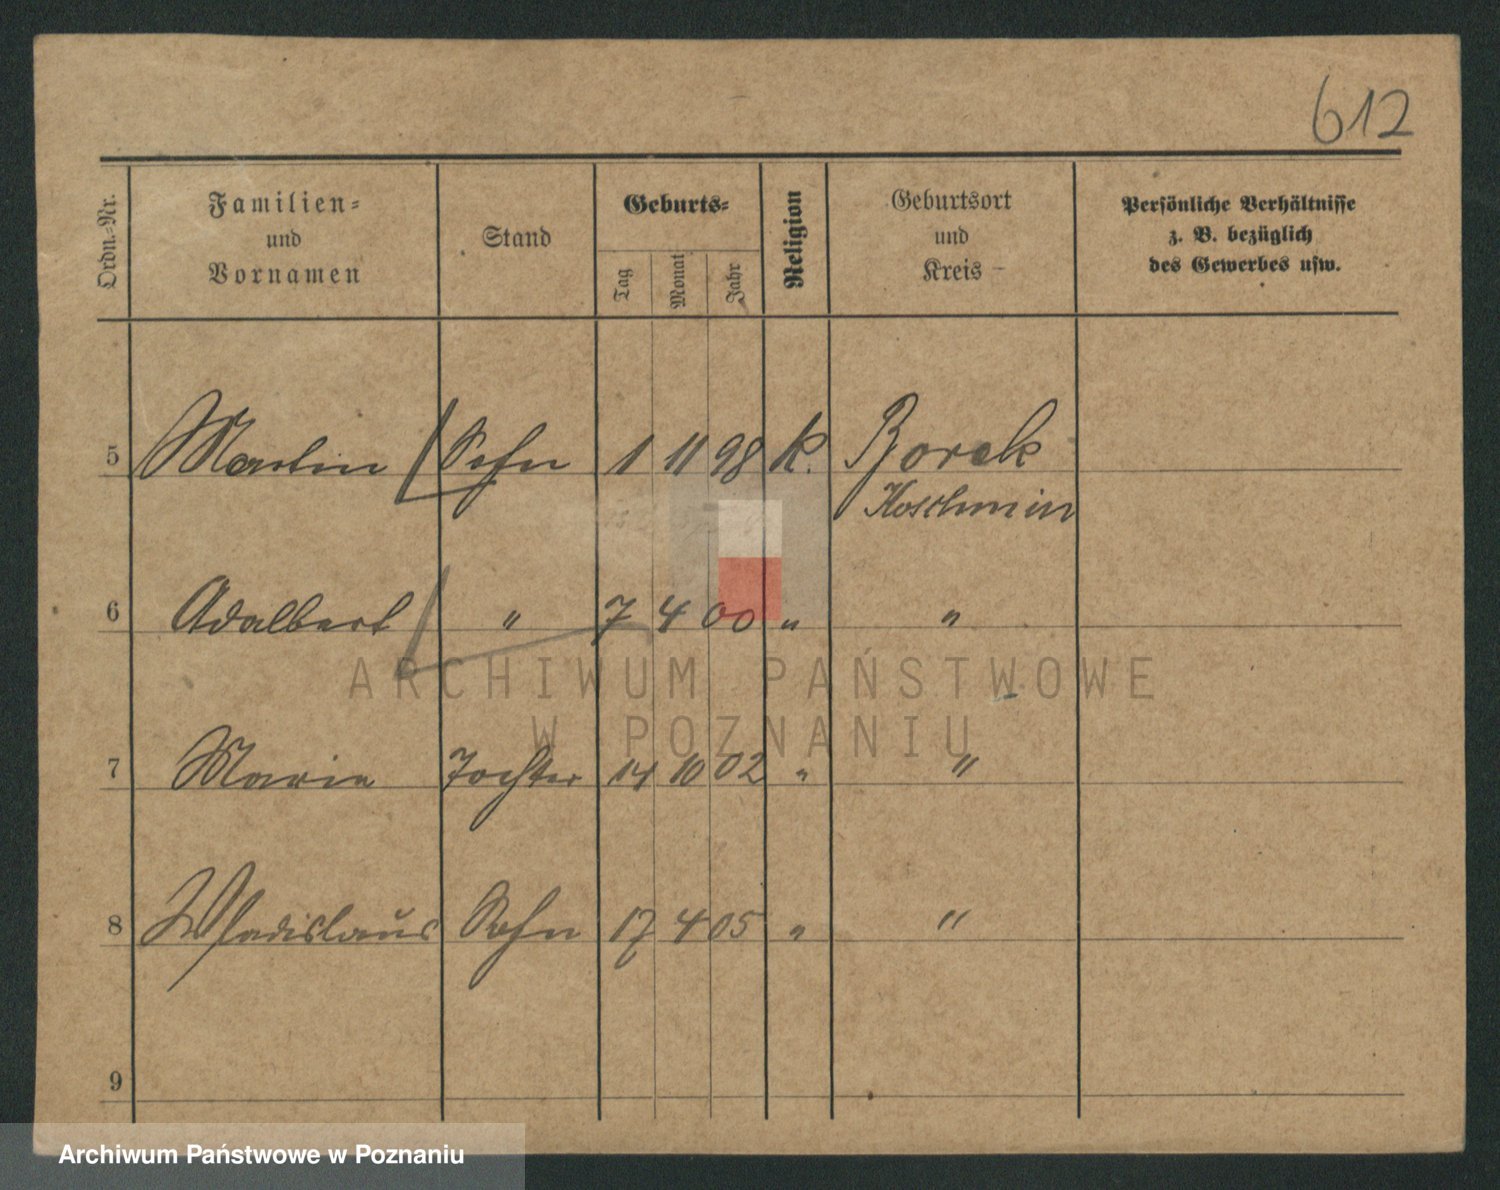 612
Ordn.-Nr.
Familien-
und
Vornamen
Stand
Geburts-
Tag
Monat
Jahr
Religion
Geburtsort
und
Kreis
Persönliche Verhältnisse
z. B. bezüglich
des Gewerbes usw.
5 Martin Sohn 1 11 98 k. Borek
Koschmin
6 Adalbert " 7 4 00 " "
ARCHIWUM PAŃSTWOWE
W POZNANIU
7 Marie Tochter 14 10 02 " "
8 Wladislaus Sohn 17 4 05 " "
9
Archiwum Państwowe w Poznaniu